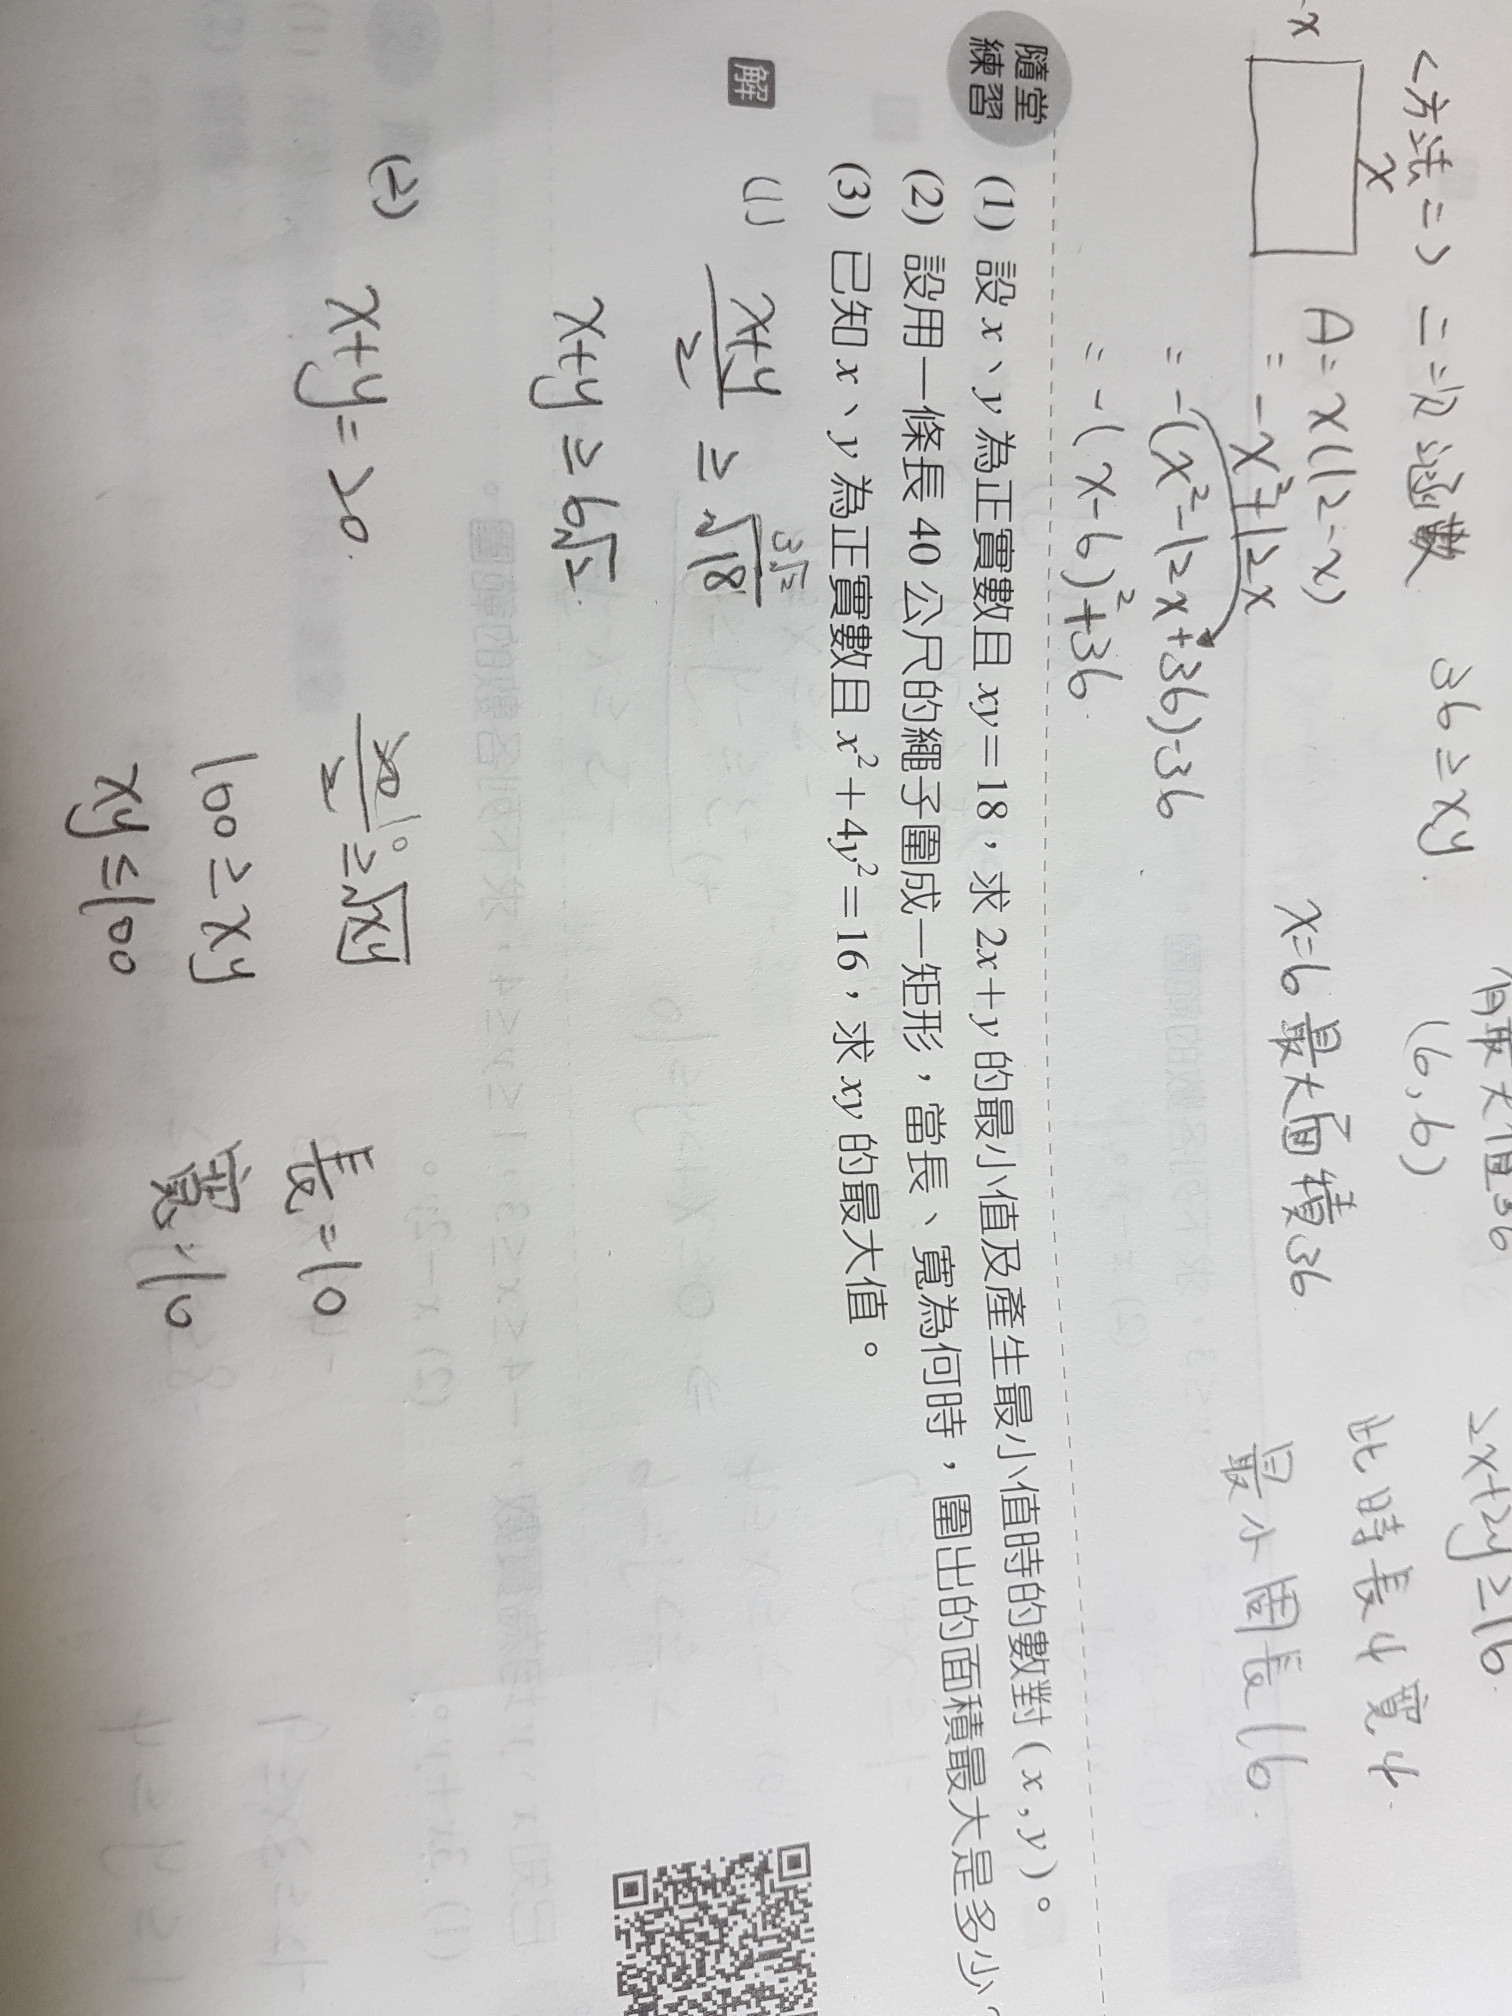 有最大值36
2x+2y≥16
<方法二> 二次函數 36≥xy. (6,6)
此時長4寬4.
x
A=x(12-x) x=6最大面積36
-x
= -x²+12x 最小周長16.
= -(x²-12x+36)-36
= -(x-6)²+36.
隨堂練習
(1) 設 x、y 為正實數且 xy=18,求 2x+y 的最小值及產生最小值時的數對(x,y)。
(2) 設用一條長 40 公尺的繩子圍成一矩形,當長、寬為何時,圍出的面積最大是多少?
(3) 已知 x、y 為正實數且 x²+4y²=16,求 xy 的最大值。
解
(1) x+y/2 ≥ √18 3√2
x+y ≥ 6√2.
(2) x+y=20. 20/2 10 ≥ √xy 長=10
100≥xy 寬=10
xy≤100